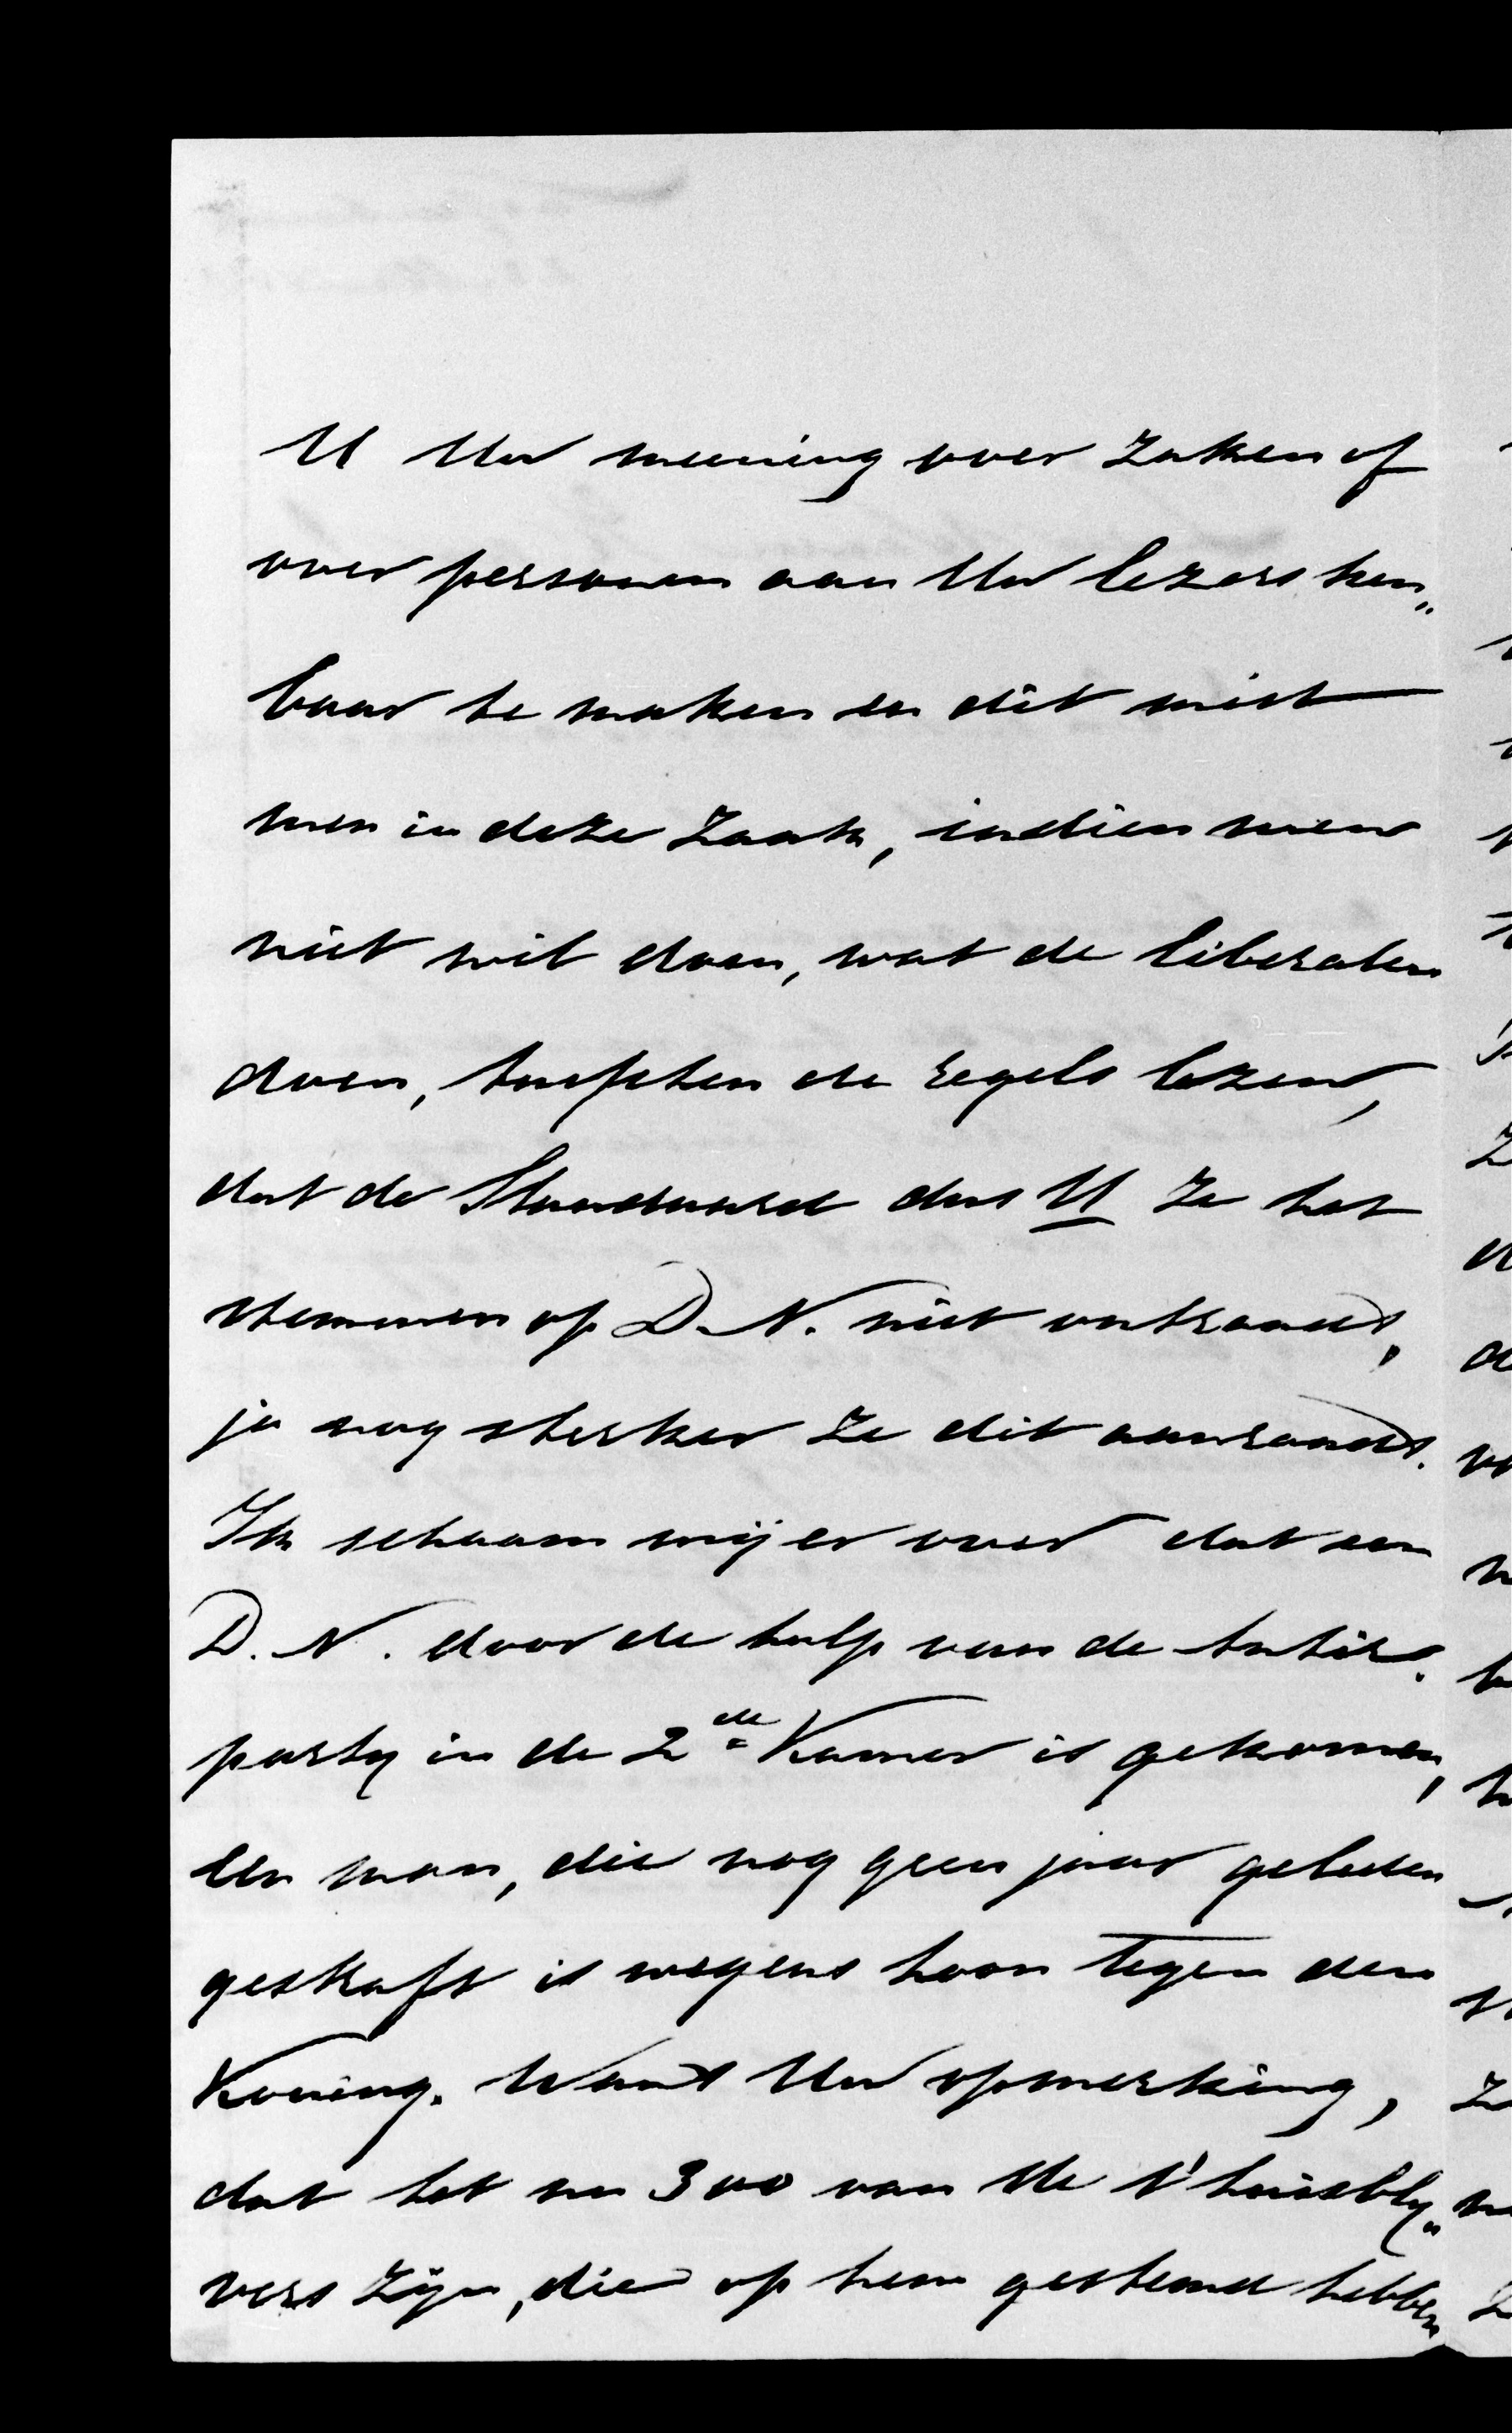 U Uw meening over zaken of
over personen aan Uw lezers ken„
baar te maken en dit mist
men in deze zaak, indien men
niet wil doen, wat de liberalen
doen, tusschen de regels lezen,
dat de Standaard dus U ze het
stemmen op D. N. niet ontraadt,
ja nog sterker ze dit aanraadt.
Ik schaam mij er over dat een
D. N. door de hulp van de Antir.
party in de 2de Kamer is gekomen,
een man, die nog geen jaar geleden
gestraft is wegens hoon tegen den
Koning. Want Uw opmerking,
dat het nu 300 van de t'huisbly„
vers zijn, die op hem gestemd hebben